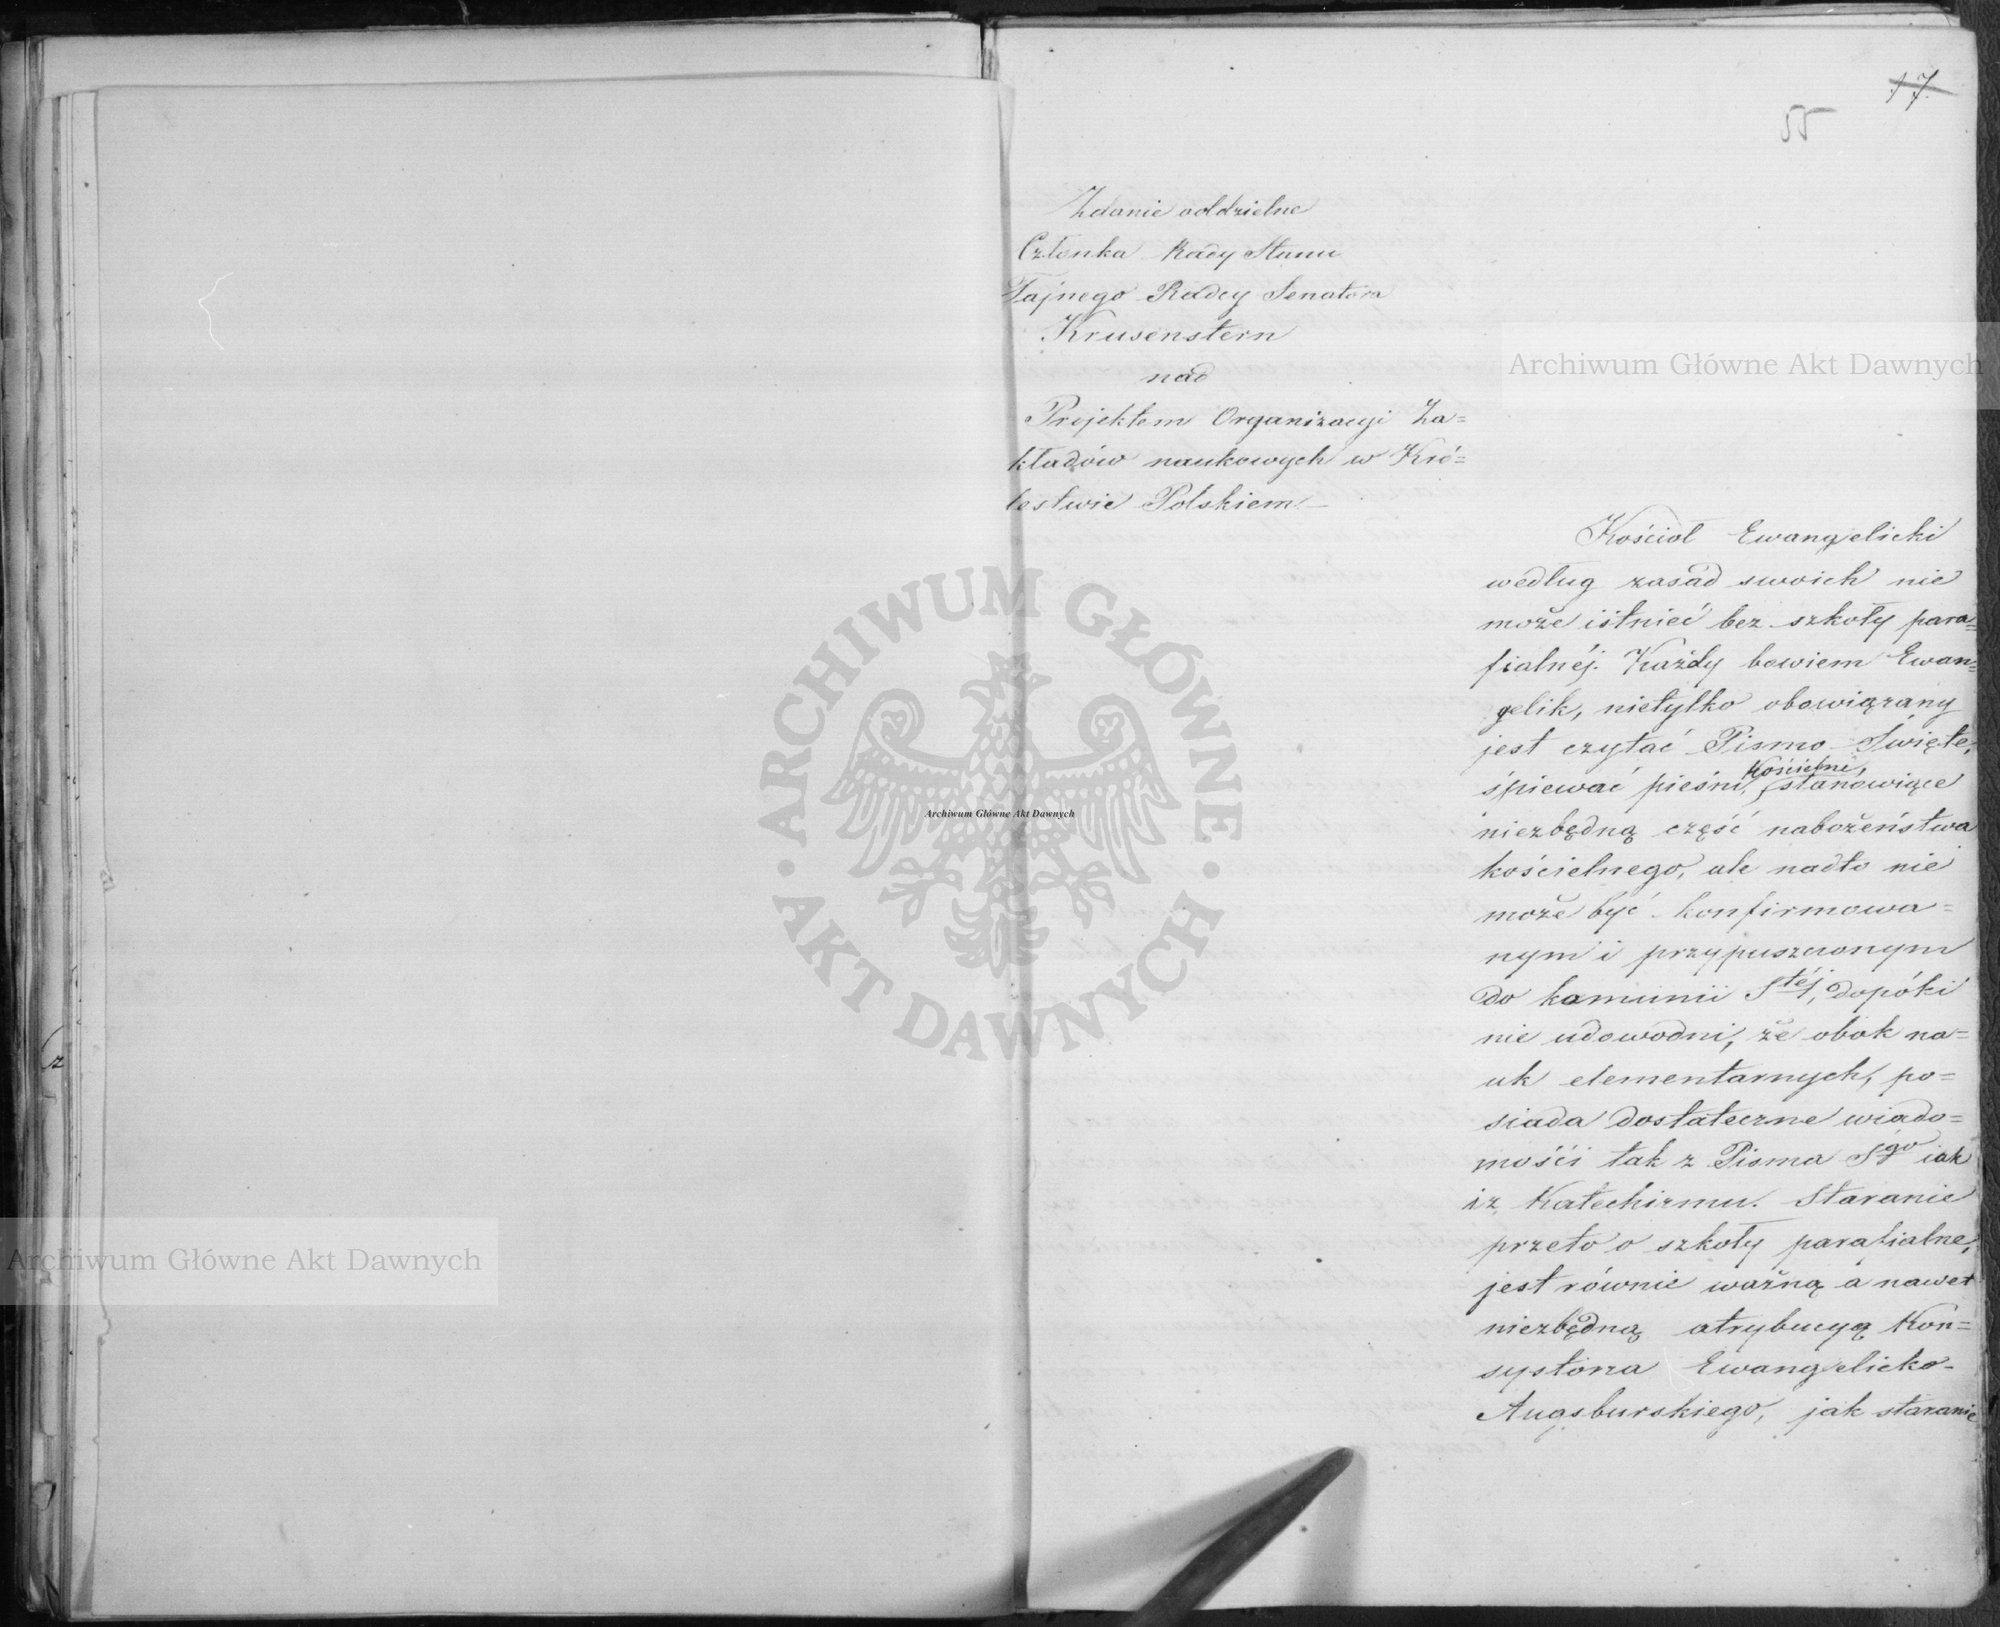 17
55
Zdanie oddzielne
Członka Rady Stanu
Tajnego Radcy Senatora
Krusenstern
nad
Projektem Organizacyi Za=
kładów naukowych w Kró=
lestwie Polskiem
Kościoł Ewangelicki
według zasad swoich nie
może istnieć bez szkoły para=
fialnéj. Każdy bowiem Ewan=
gelik, nietylko obowiązany
jest czytać Pismo Święte,
śpiewać pieśni Kościelne, stanowiące
niezbędną część nabożeństwa
kościelnego, ale nadto nie
może być konfirmowa=
nym i przypuszczonym
do komunii Stéj, dopóki
nie udowodni, że obok na=
uk elementarnych, po=
siada dostateczne wiado=
mości tak z Pisma Sgo jak
i z Katechizmu. Staranie
przeto o szkoły parafialne,
jest równie ważną a nawet
niezbędną atrybucyą Kon=
systorza Ewangelicko-
Augsburskiego, jak staranie
z
Archiwum Główne Akt Dawnych
ARCHIWUM GŁÓWNE · AKT DAWNYCH ·
Archiwum Główne Akt Dawnych
Archiwum Główne Akt Dawnych